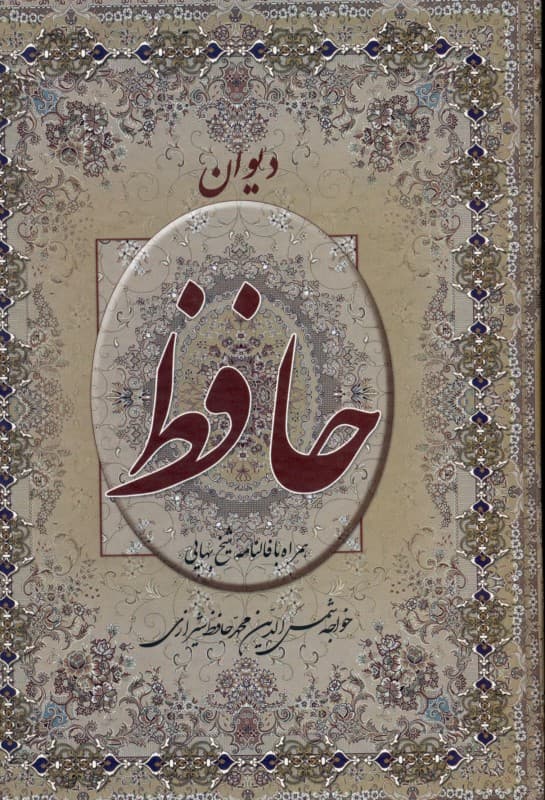 دیوان
حافظ
همراه با فالنامه شیخ بهایی
خواجه شمس الدین محمد حافظ شیرازی